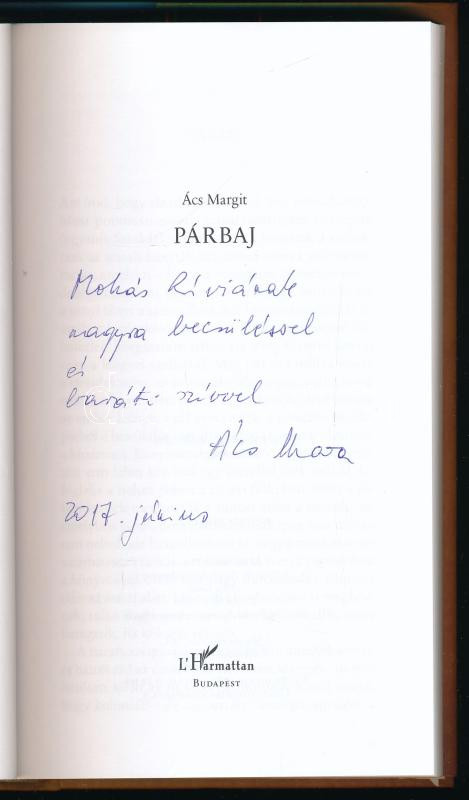 Ács Margit
PÁRBAJ
Mohás Líviának
nagyra becsüléssel
és
baráti szívvel
Ács
2017. június
L'Harmattan
BUDAPEST